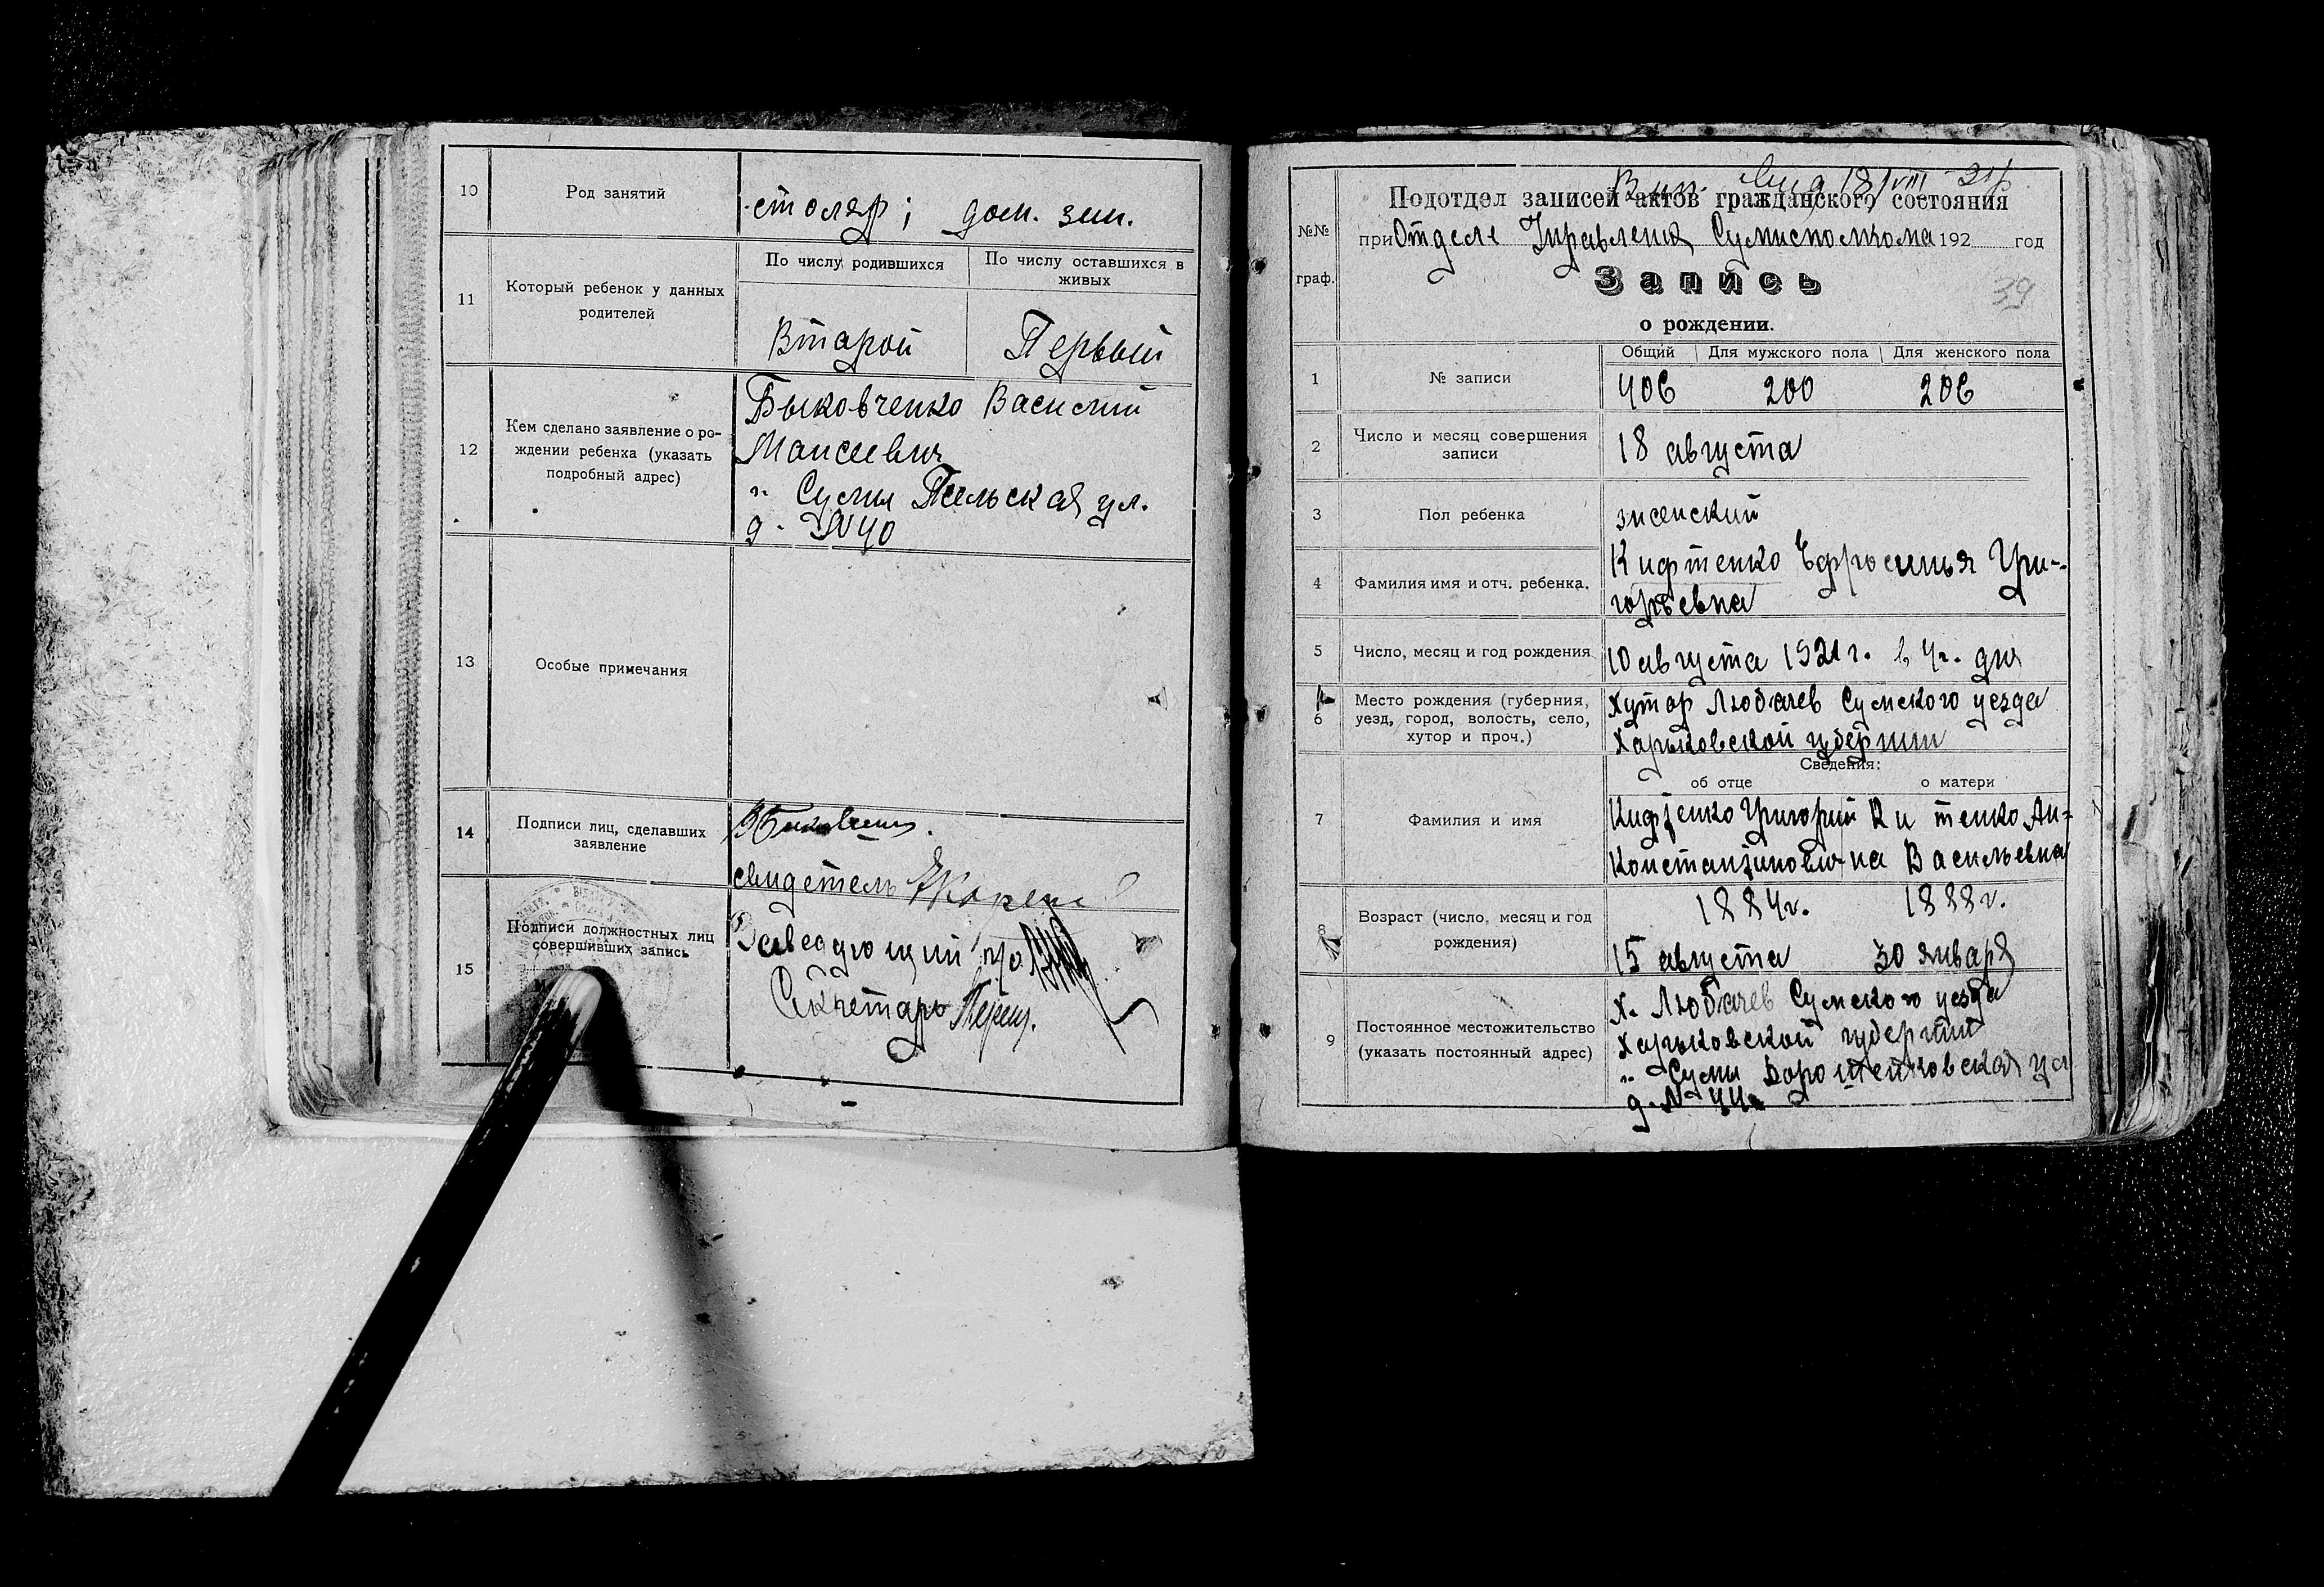 10
Род занятий
столяр; дом. зан.
11
Который ребенок у данных
родителей
По числу родившихся
По числу оставшихся в
живых
Второй
Первый
12
Кем сделано заявление о ро-
ждении ребенка (указать
подробный адрес)
Быковченко Василий
Моисеевич
г. Сумы Псельская ул.
д. №40
13
Особые примечания
14
Подписи лиц, сделавших
заявление
свидетель
15
Подписи должностных лиц
совершивших запись
Заведующий п/о
Секретарь
Вып. 18/VIII 21
Подотдел записей актов гражданского состояния
№№
граф.
при Отделе Управления Сумисполкома 192 год
Запись
39
о рождении.
1
№ записи
Общий
Для мужского пола
Для женского пола
406 200 206
2
Число и месяц совершения
записи
18 августа
3
Пол ребенка
женский
4
Фамилия имя и отч. ребенка.
Кифтенко Ефросинья Гри-
горьевна
5
Число, месяц и год рождения
10 августа 1921 г. в 4 ч. дня
6
Место рождения (губерния,
уезд, город, волость, село,
хутор и проч.)
Хутор Любачев Сумского уезда
Харьковской губернии
Сведения:
об отце
о матери
7
Фамилия и имя
Кифтенко Григорий
Константинович
Ки тенко Ан-
на Васильевна
8
Возраст (число, месяц и год
рождения)
1884 г.
15 августа
1888 г.
30 января
9
Постоянное местожительство
(указать постоянный адрес)
х. Любачев Сумского уезда
Харьковской губернии
г. Сумы ул
д. № 44